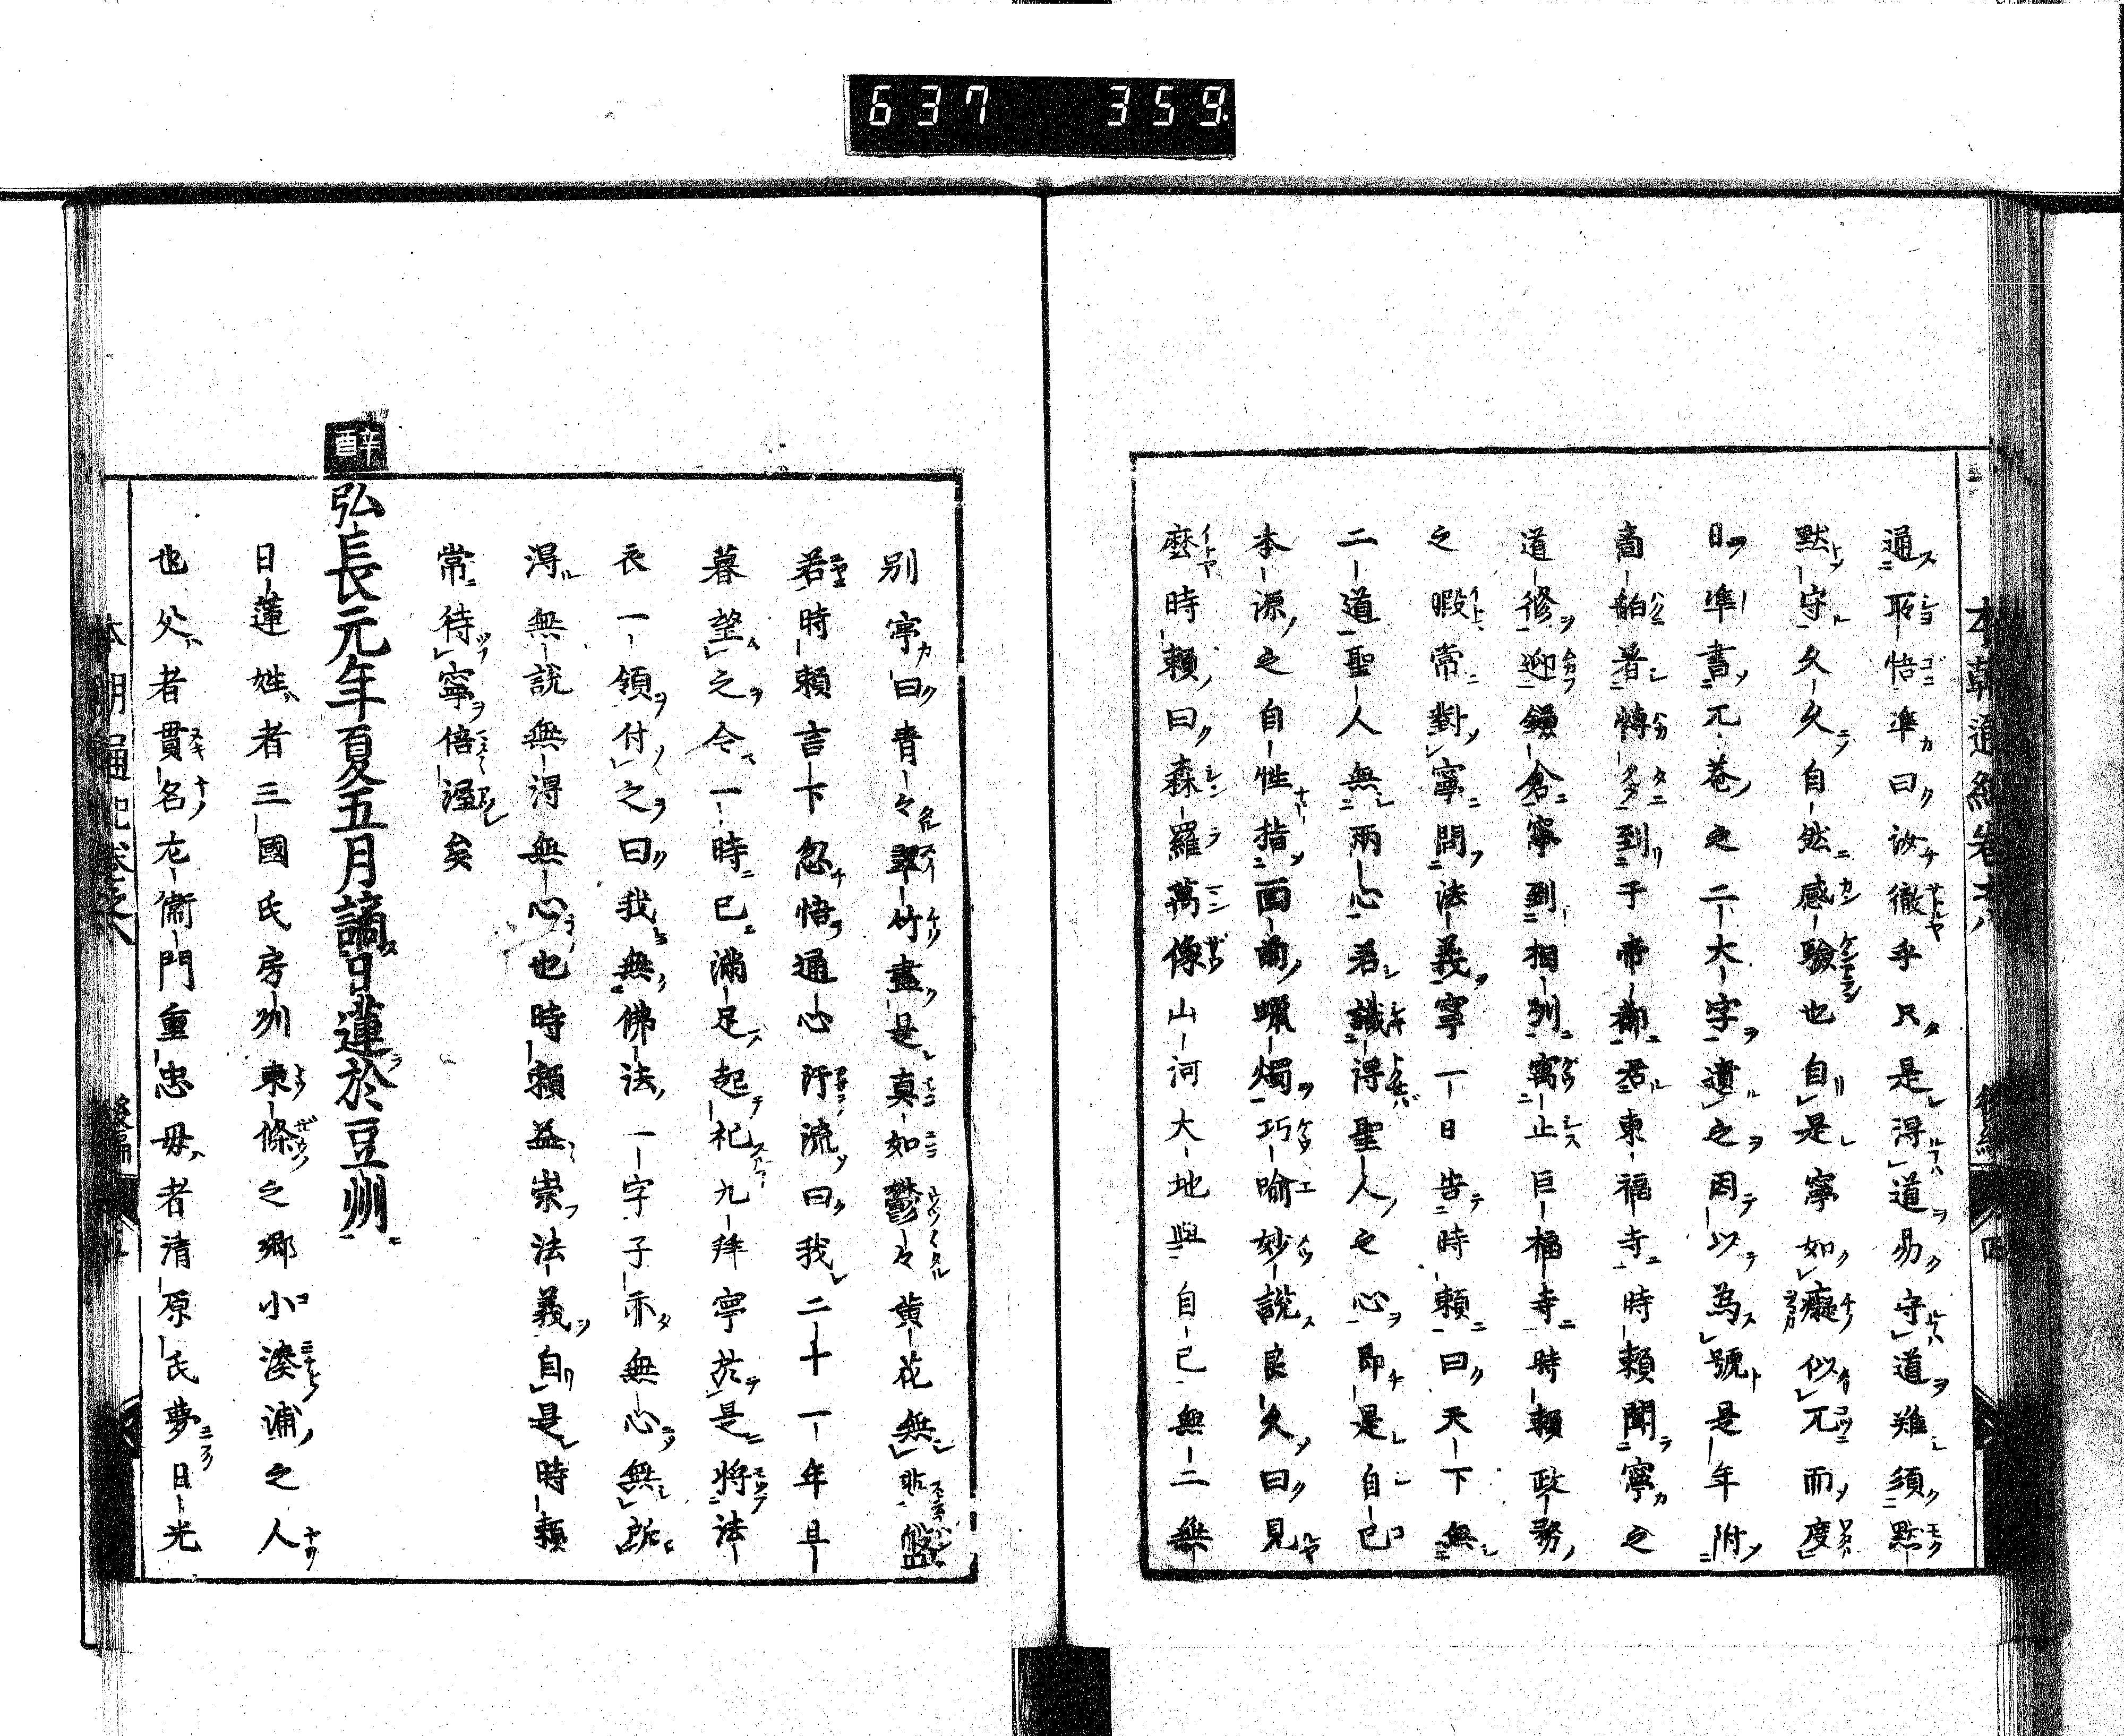 637 359
通聊悟準曰汝徹乎只是得道易守道難須默
默守久久自然感驗也自是寧如癡似兀而度
日準書兀菴之二大字遺之因以為號是年附
商舶着博多到于帝都君東福寺時賴聞寧之
道修迎鎌倉寧到相州寓止巨福寺時賴政務
之暇常對寧問法義寧一日告時賴曰天下無
二道聖人無兩心若識得聖人之心即是自己
本源之自性指面前蠟燭巧喻妙說良久曰見
麼時賴曰森羅萬像山河大地與自己無二無
別寧曰青々翠竹盡是真如鬱々黄花無非盤
若時賴言下忽悟通心所流曰我二十一年旦
暮望之今一時已滿足起礼九拜寧於是將法
衣一領付之曰我無佛法一字子示無心無所
得無說無得無心也時賴益崇法義自是時賴
常待寧倍渥矣
辛酉
弘長元年夏五月謫日蓮於豆州
日蓮姓者三國氏房州東條之郷小湊浦之人
也父者貫名左衞門重忠母者清原氏夢日光